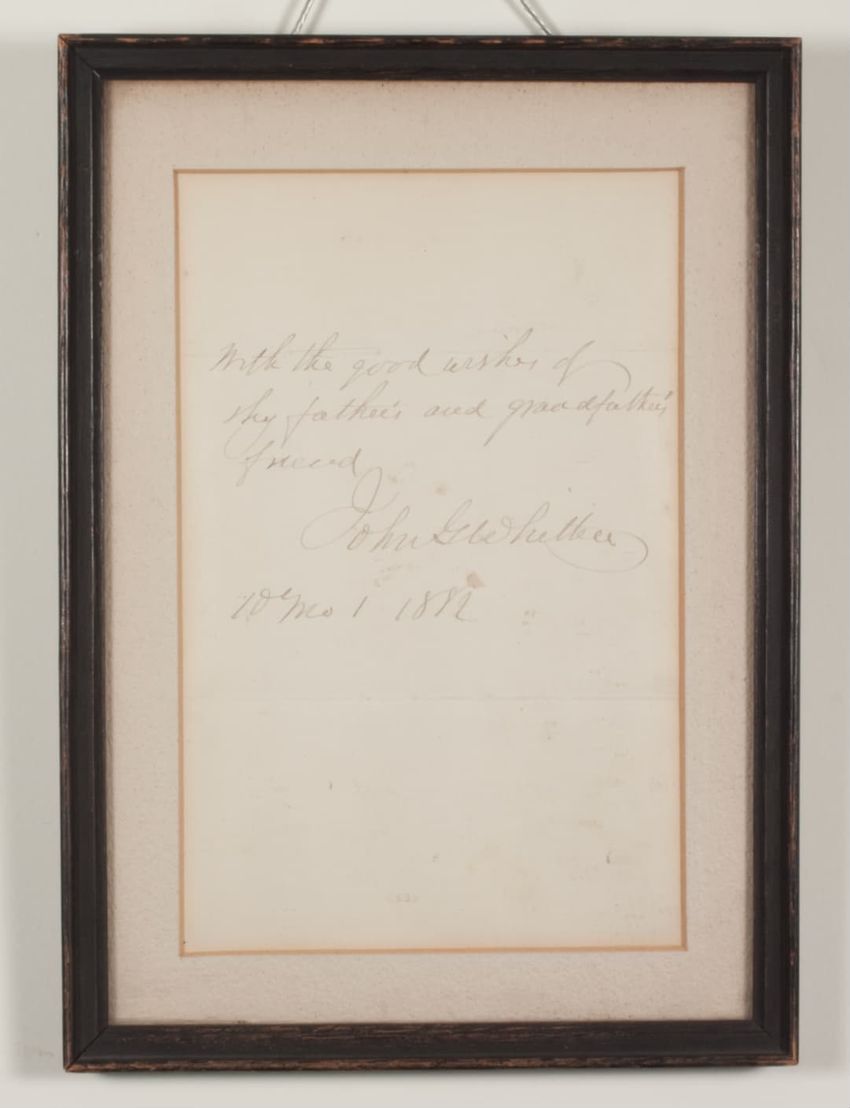 With the good wishes of
thy father's and grandfather's
friend
John G Whittier
10th Mo 1 1882